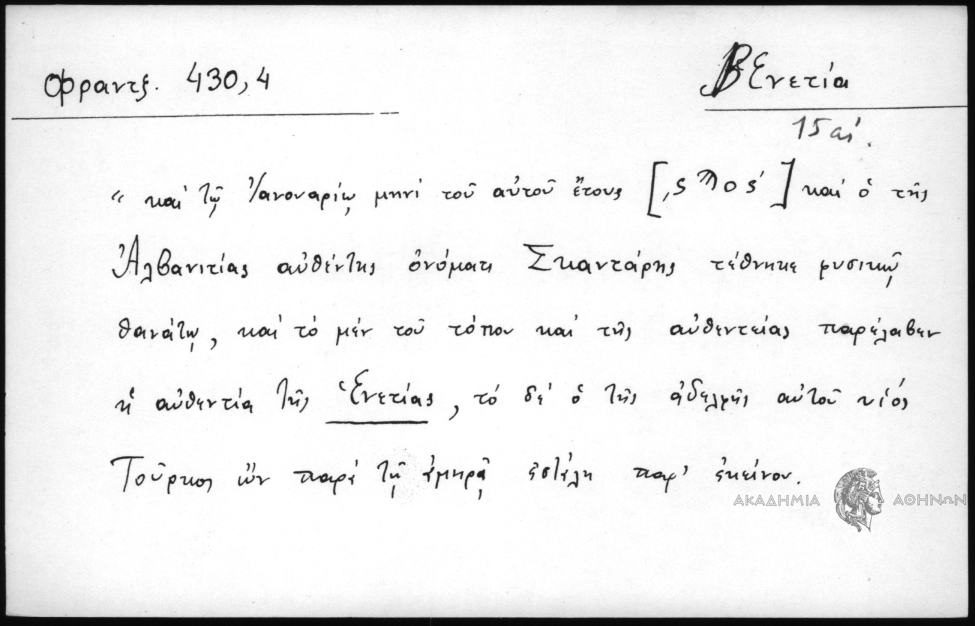 Φραντζ. 430,4
Βενετία
15 αἰ.
“ καὶ τῷ Ἰανουαρίῳ μηνὶ τοῦ αὐτοῦ ἔτους [͵ϛϠοϛʹ] καὶ ὁ τῆς
Ἀλβανιτίας αὐθέντης ὀνόματι Σκαντάρης τέθνηκε φυσικῷ
θανάτῳ, καὶ τὸ μὲν τοῦ τόπου καὶ τῆς αὐθεντείας παρέλαβεν
ἡ αὐθεντία τῆς Ἐνετίας, τὸ δὲ ὁ τῆς ἀδελφῆς αὐτοῦ υἱός
Τοῦρκος ὢν παρὰ τῷ ἀμηρᾷ ἐστάλη παρ' ἐκείνου.
ΑΚΑΔΗΜΙΑ ΑΘΗΝΩΝ